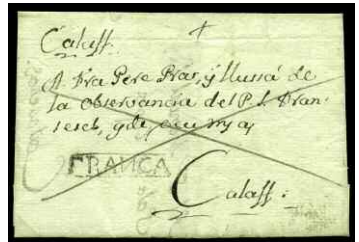 Calaff.
A Fra Pere Pras, y llussá de
la Observancia del P. S. Fran-
sesch, gde
FRANCA
Calaff.